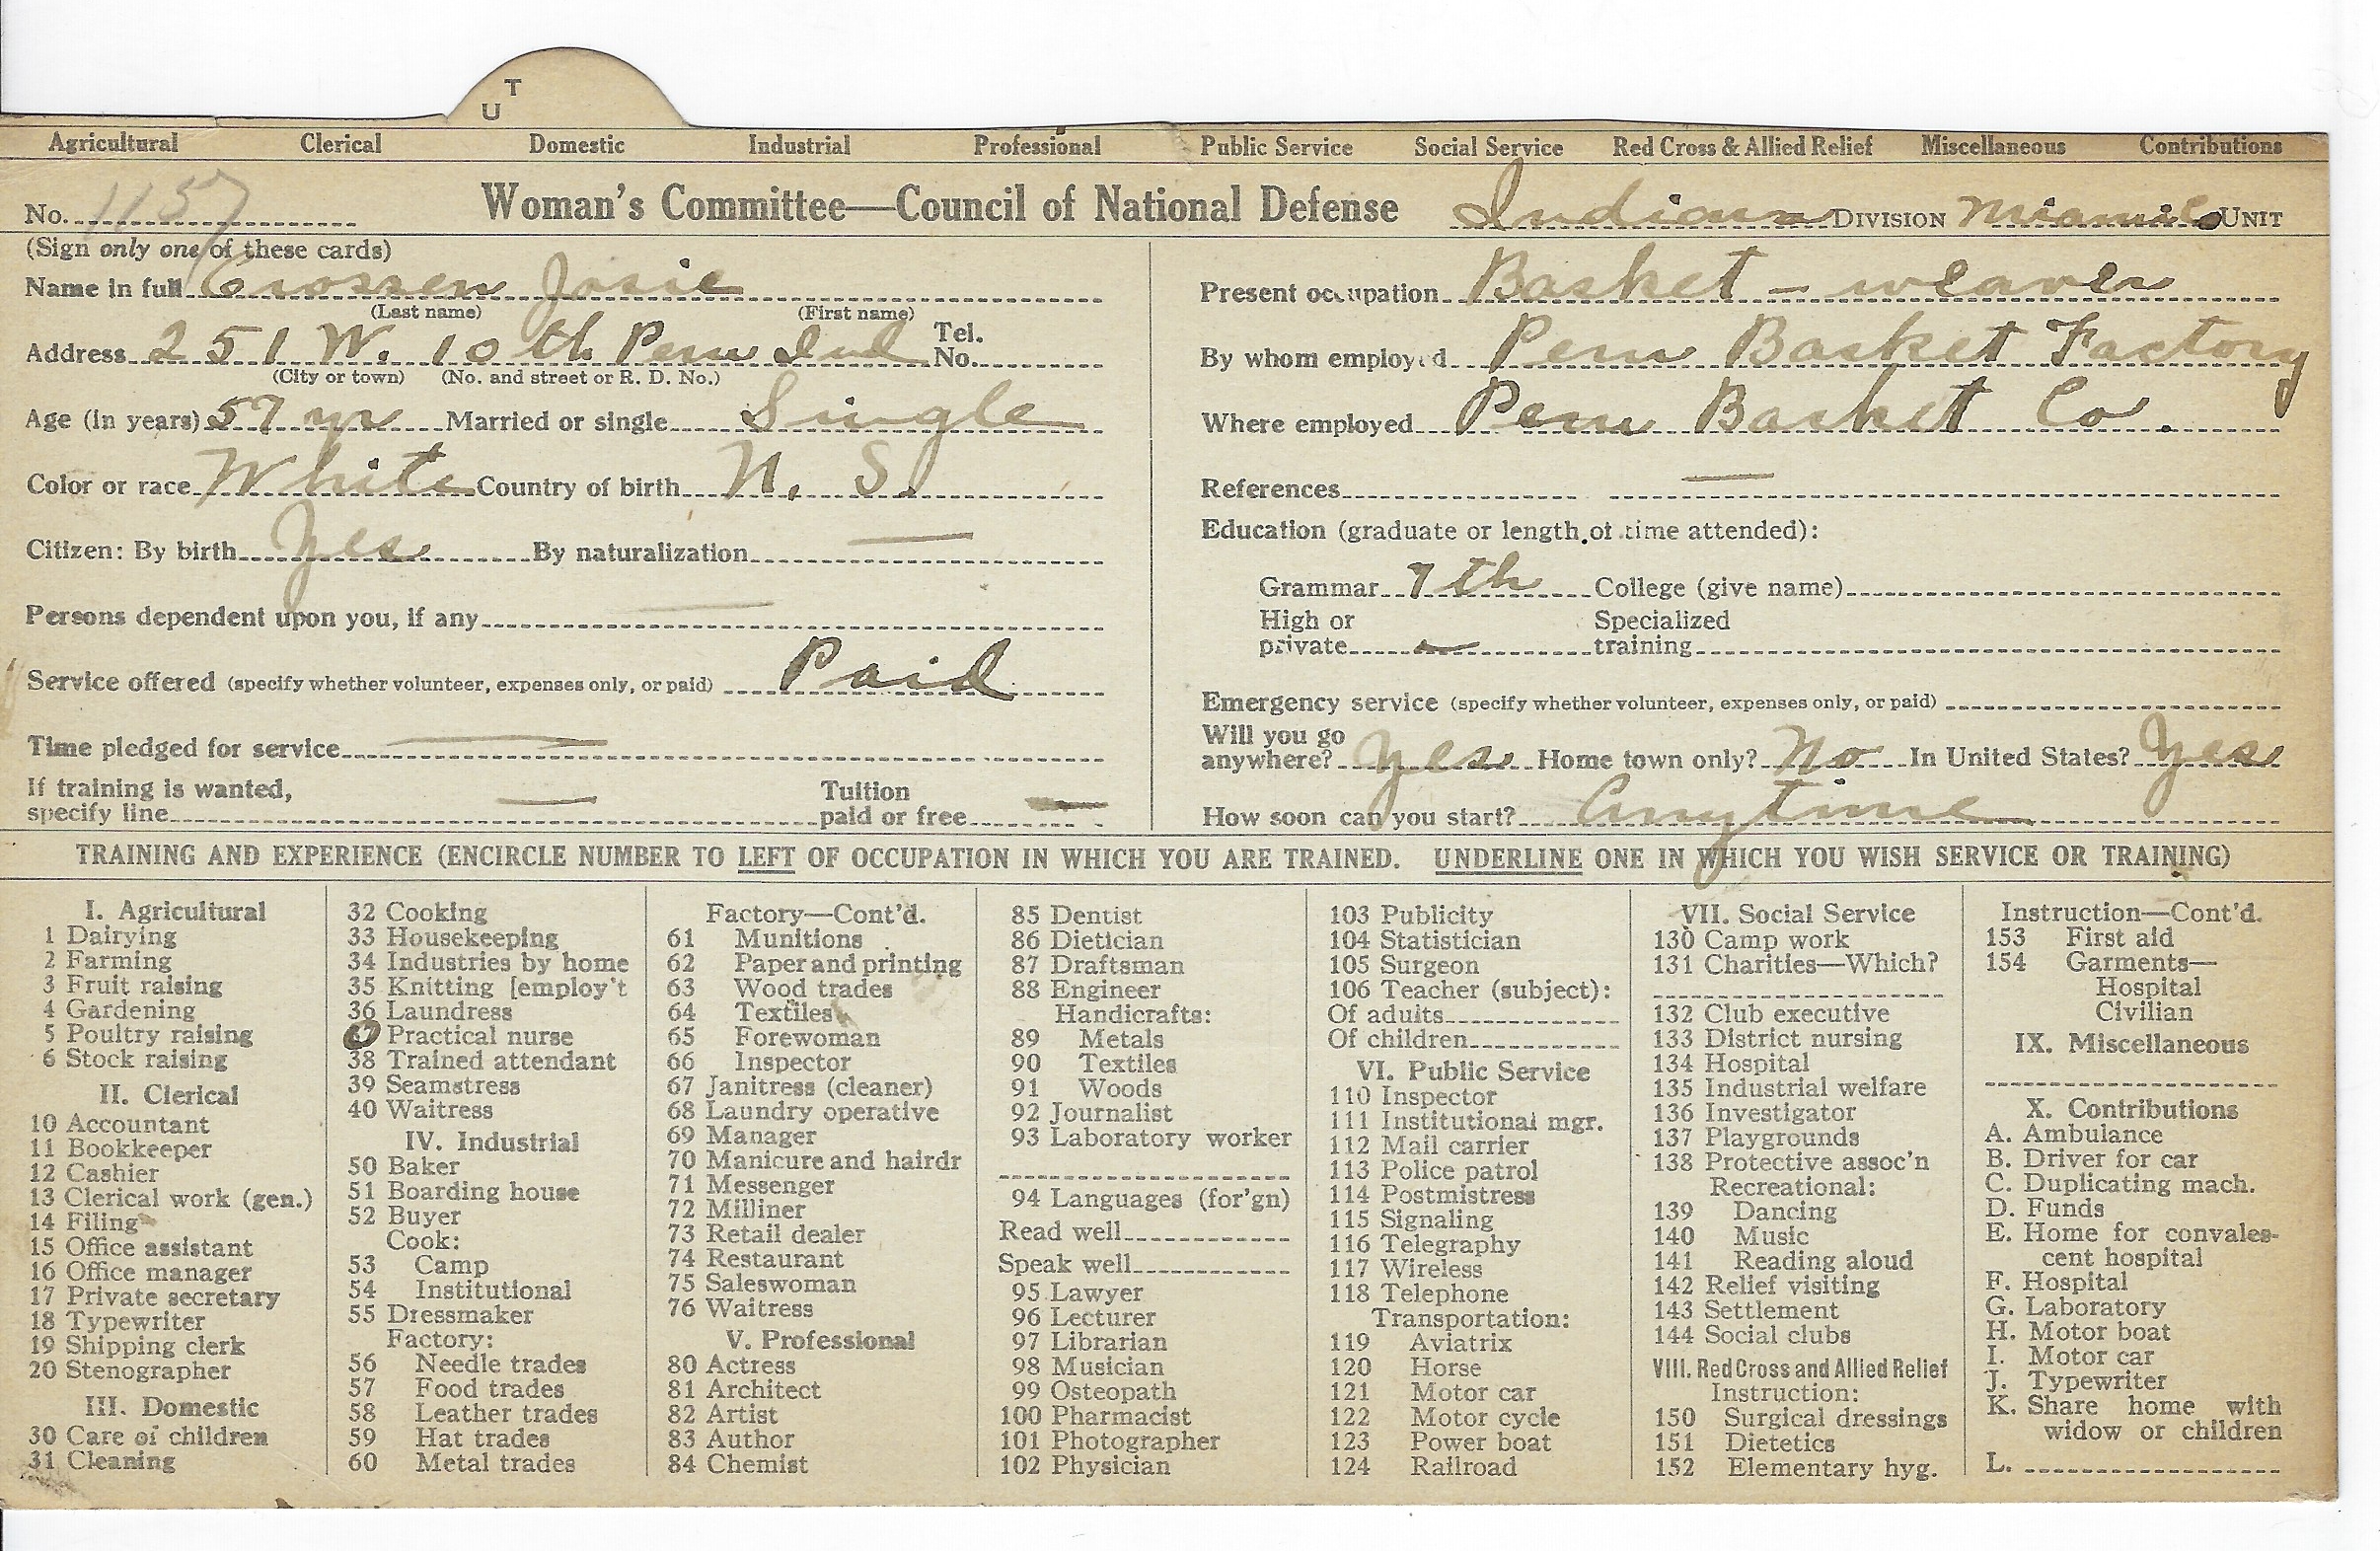 T
U
Agricultural Clerical Domestic Industrial Professional Public Service Social Service Red Cross & Allied Relief Miscellaneous Contributions
No. 1157 Woman's Committee—Council of National Defense Indiana DIVISION Miami Co UNIT
(Sign only one of these cards)
Name in full Crossen Josie
(Last name) (First name)
Address 251 W. 10th Peru Ind Tel. No.
(City or town) (No. and street or R. D. No.)
Age (in years) 57 yr Married or single Single
Color or race White Country of birth N. S.
Citizen: By birth Yes By naturalization —
Persons dependent upon you, if any —
Service offered (specify whether volunteer, expenses only, or paid) Paid
Time pledged for service —
If training is wanted, specify line — Tuition paid or free —
Present occupation Basket - weaver
By whom employed Peru Basket Factory
Where employed Peru Basket Co.
References —
Education (graduate or length of time attended):
Grammar 7th College (give name)
High or private — Specialized training
Emergency service (specify whether volunteer, expenses only, or paid)
Will you go anywhere? Yes Home town only? No In United States? Yes
How soon can you start? Anytime
TRAINING AND EXPERIENCE (ENCIRCLE NUMBER TO LEFT OF OCCUPATION IN WHICH YOU ARE TRAINED. UNDERLINE ONE IN WHICH YOU WISH SERVICE OR TRAINING)
I. Agricultural
1 Dairying
2 Farming
3 Fruit raising
4 Gardening
5 Poultry raising
6 Stock raising
II. Clerical
10 Accountant
11 Bookkeeper
12 Cashier
13 Clerical work (gen.)
14 Filing
15 Office assistant
16 Office manager
17 Private secretary
18 Typewriter
19 Shipping clerk
20 Stenographer
III. Domestic
30 Care of children
31 Cleaning
32 Cooking
33 Housekeeping
34 Industries by home
35 Knitting [employ't
36 Laundress
37 Practical nurse
38 Trained attendant
39 Seamstress
40 Waitress
IV. Industrial
50 Baker
51 Boarding house
52 Buyer
Cook:
53 Camp
54 Institutional
55 Dressmaker
Factory:
56 Needle trades
57 Food trades
58 Leather trades
59 Hat trades
60 Metal trades
Factory—Cont'd.
61 Munitions
62 Paper and printing
63 Wood trades
64 Textiles
65 Forewoman
66 Inspector
67 Janitress (cleaner)
68 Laundry operative
69 Manager
70 Manicure and hairdr
71 Messenger
72 Milliner
73 Retail dealer
74 Restaurant
75 Saleswoman
76 Waitress
V. Professional
80 Actress
81 Architect
82 Artist
83 Author
84 Chemist
85 Dentist
86 Dietician
87 Draftsman
88 Engineer
Handicrafts:
89 Metals
90 Textiles
91 Woods
92 Journalist
93 Laboratory worker
94 Languages (for'gn)
Read well
Speak well
95 Lawyer
96 Lecturer
97 Librarian
98 Musician
99 Osteopath
100 Pharmacist
101 Photographer
102 Physician
103 Publicity
104 Statistician
105 Surgeon
106 Teacher (subject):
Of adults
Of children
VI. Public Service
110 Inspector
111 Institutional mgr.
112 Mail carrier
113 Police patrol
114 Postmistress
115 Signaling
116 Telegraphy
117 Wireless
118 Telephone
Transportation:
119 Aviatrix
120 Horse
121 Motor car
122 Motor cycle
123 Power boat
124 Railroad
VII. Social Service
130 Camp work
131 Charities—Which?
132 Club executive
133 District nursing
134 Hospital
135 Industrial welfare
136 Investigator
137 Playgrounds
138 Protective assoc'n
Recreational:
139 Dancing
140 Music
141 Reading aloud
142 Relief visiting
143 Settlement
144 Social clubs
VIII. Red Cross and Allied Relief
Instruction:
150 Surgical dressings
151 Dietetics
152 Elementary hyg.
Instruction—Cont'd.
153 First aid
154 Garments—
Hospital
Civilian
IX. Miscellaneous
X. Contributions
A. Ambulance
B. Driver for car
C. Duplicating mach.
D. Funds
E. Home for convales-
cent hospital
F. Hospital
G. Laboratory
H. Motor boat
I. Motor car
J. Typewriter
K. Share home with
widow or children
L.